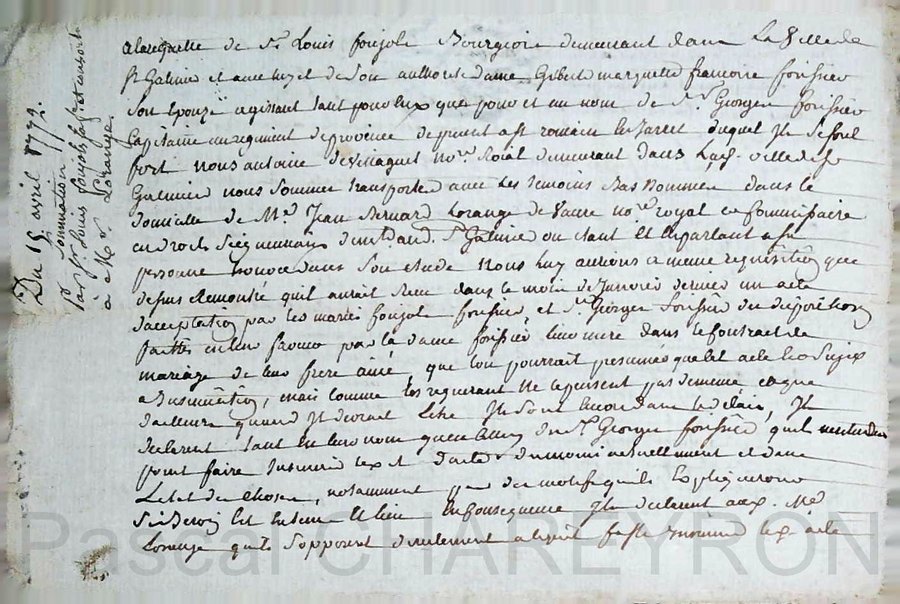 Du 15 avril 1772.
Sommation
par Sr Louis foujols et consorts
à Me Lorange
a la requette de Sr Louis foujols Bourgeois demeurant dans La Ville de
St Galmier et avec luy et de Son authorité dame Gilbert marguerite francoise forissier
Son Epouze agissant tant pour Eux que pour et au nom de Sr Georges forissier
Capitaine au regiment de province de present a St romain En Jarret duquel Ils Se font
fort nous antoine no.re Roial demeurant dans La d. ville de St
Galmier nous Sommes transportes avec Les temoins Bas Nommes dans le
domicille de Me Jean Bernard Lorange de no.re royal Commissaire
en droits Seigneuriaux St Galmier ou Etant Et En parlant a Sa
personne trouvé dans Son etude Nous Luy aurions a meme requisition que
depuis remontré qu'il aurait dans le mois de Janvier dernier un acte
d'acceptation par les mariés foujols forissier et Sr Georges forissier des dispositions
faittes en leur faveur par la dame forissier leur mere dans le Contract de
mariage de leur frere ainé, que l'on pourrait presumer que led. acte Est Sujet
a Insinuation, mais comme les requerants ne le pensent pas de meme et que
d'ailleurs quand Il devrait L'etre Ils Sont Encore dans le delais, Ils
declarent tant En leur nom qu'en celluy du Sr Georges forissier qu'ils n'entendent
point faire Insinuer led. acte du moins actuellement et dans
L'etat des choses, notamment par des motifs qu'ils Expliqueront
Si Besoin Est En tems Et lieu En consequence Ils declarent aud. Me
Lorange qu'ils S'opposent a ce qu'il fasse Insinuer led. acte
Pascal CHAREYRON